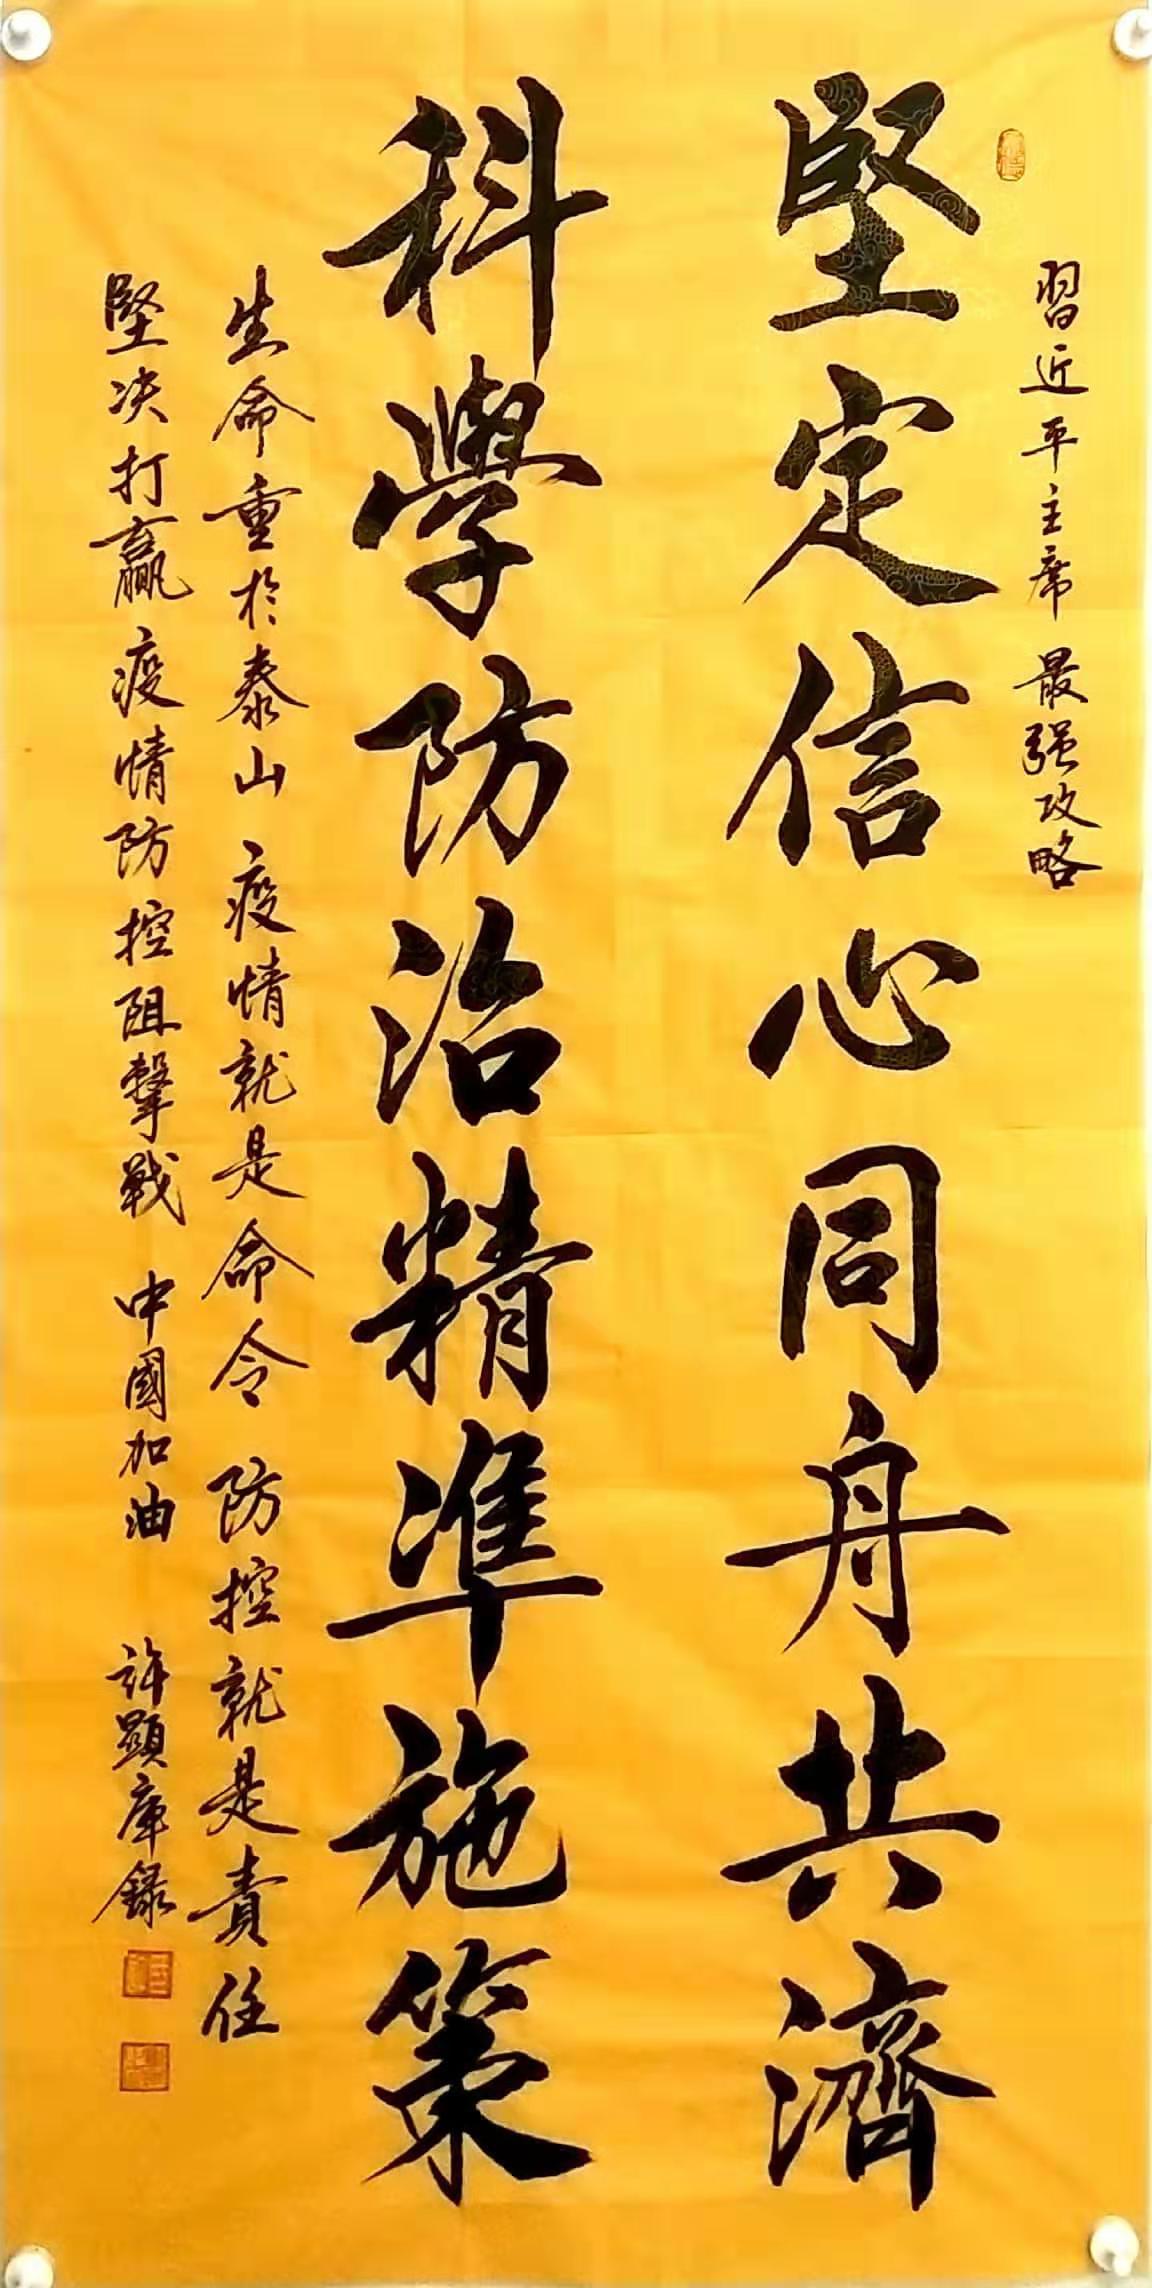 習近平主席 最强攻略
堅定信心同舟共濟
科學防治精準施策
生命重於泰山 疫情就是命令 防控就是責任
堅决打贏疫情防控阻擊戰 中國加油 許顯庫錄